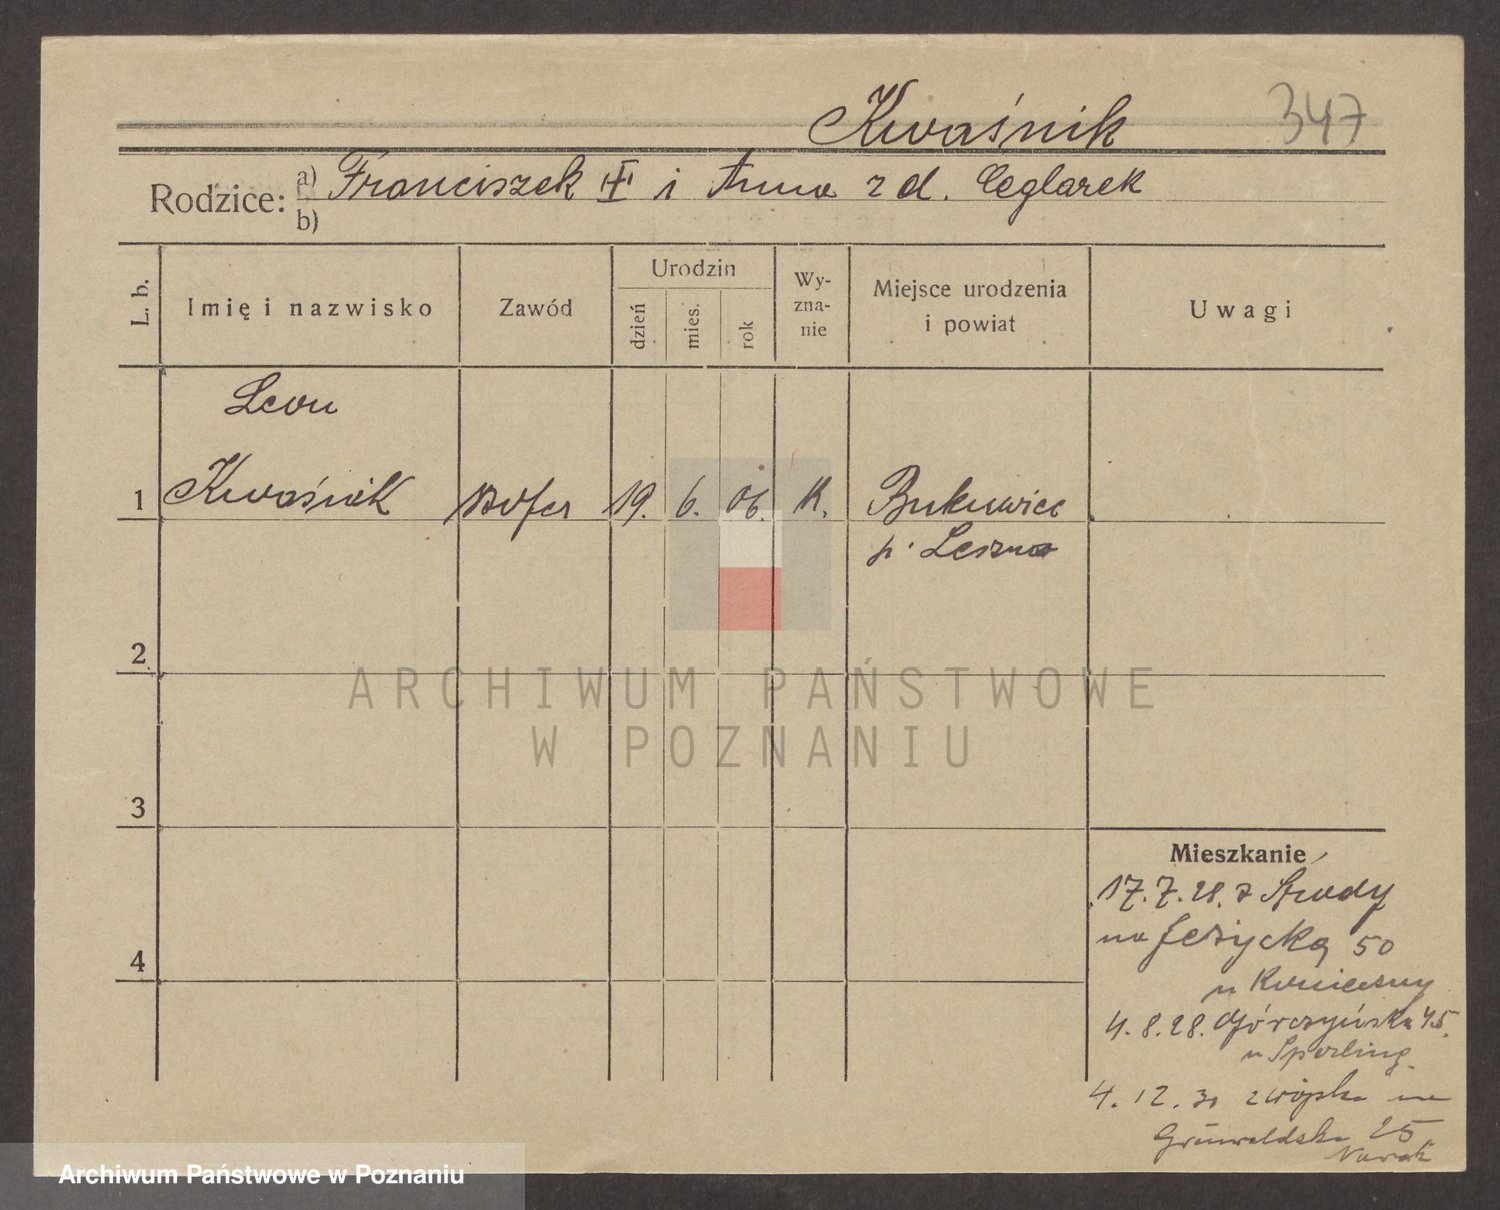 Kwaśnik 347
Rodzice: a) Franciszek i Anna z d. Ceglarek
b)
L. b.
Imię i nazwisko
Zawód
Urodzin
dzień
mies.
rok
Wy-
zna-
nie
Miejsce urodzenia
i powiat
Uwagi
Leon
1 Kwaśnik szofer 19. 6. 06. K. Bukuwiec
p. Leszno
2
3
4
Mieszkanie
17.7.28. z Środy
na Jeżycką 50
u Konieczny
4.8.28. Górczyńska 45.
u Sperling.
4.12.30 z wojska na
Grunwaldska 25
Nowak
ARCHIWUM PAŃSTWOWE
W POZNANIU
Archiwum Państwowe w Poznaniu